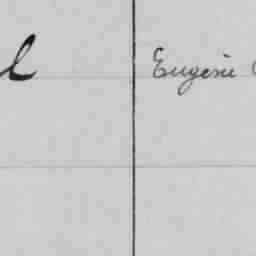 l Eugenie